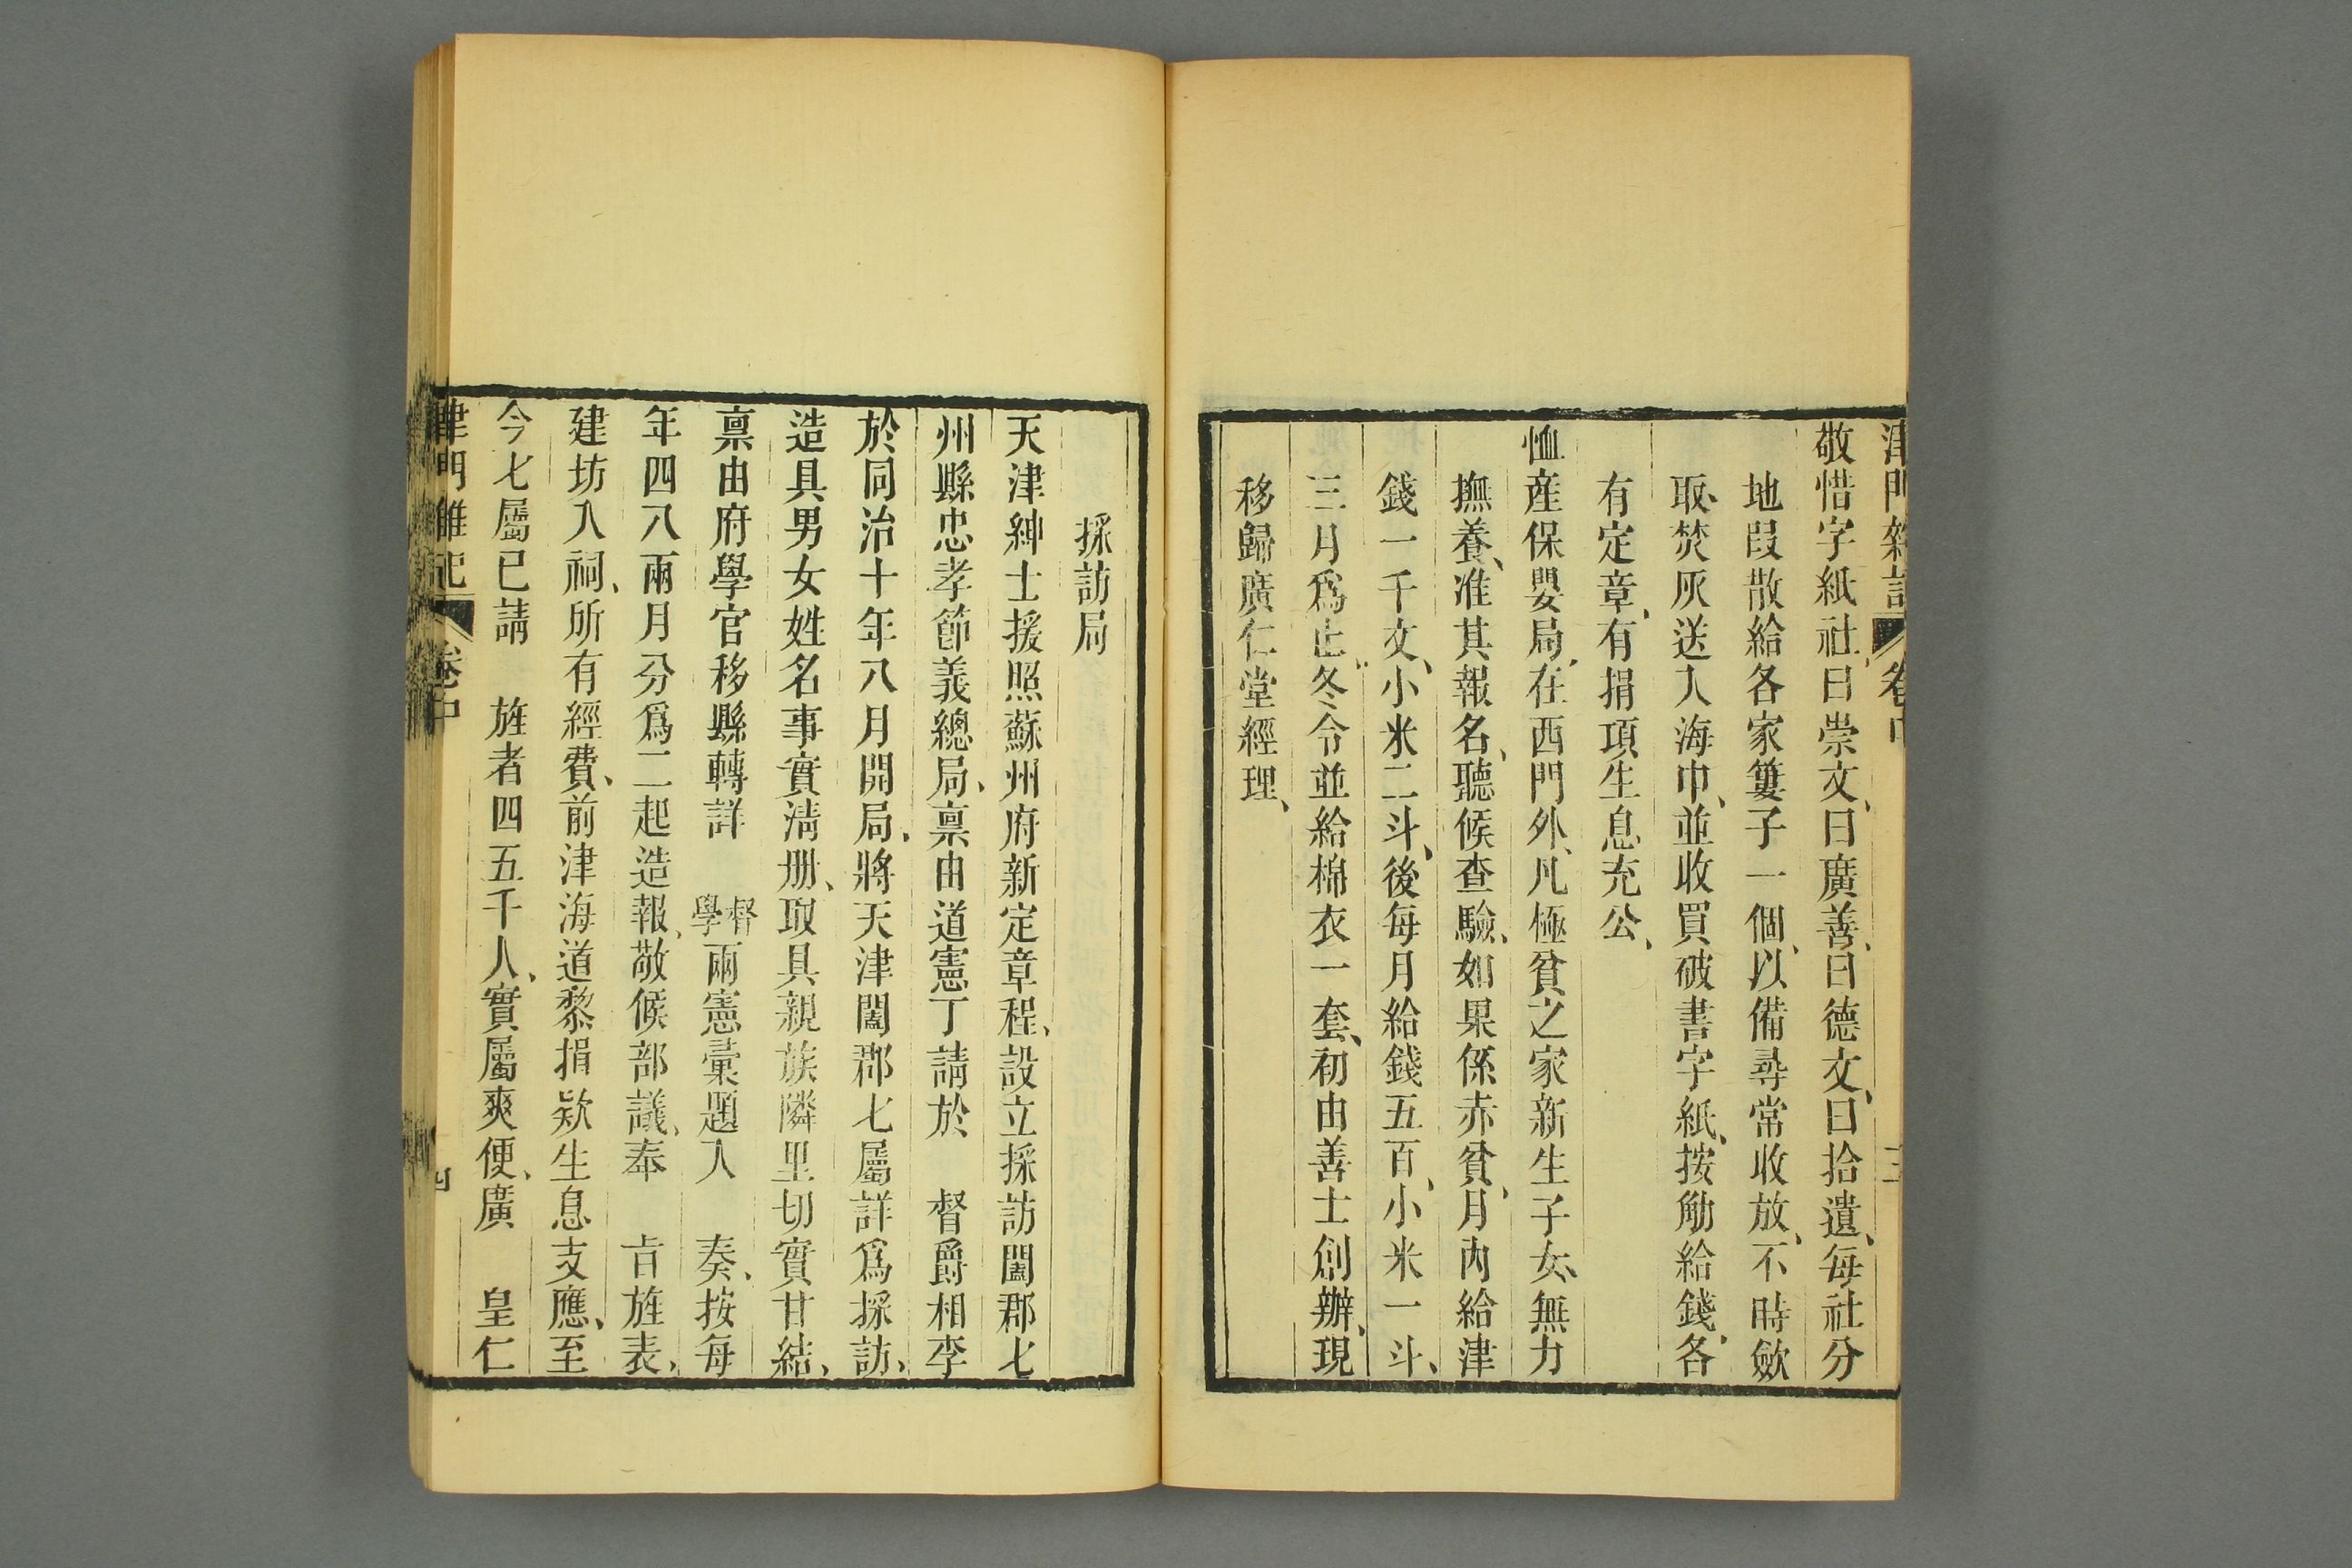 津門雜記 卷中 三
敬惜字紙社、曰崇文、曰廣善、曰德文、曰拾遺、每社分
地段散給各家簍子一個、以備尋常收放、不時斂
取、焚灰送入海中、並收買破書字紙、按觔給錢、各
有定章、有捐項生息充公、
恤產保嬰局、在西門外、凡極貧之家新生子女、無力
撫養、准其報名、聽候查驗、如果係赤貧、月內給津
錢一千文、小米二斗、後每月給錢五百、小米一斗、
三月爲止、冬令並給棉衣一套、初由善士創辦、現
移歸廣仁堂經理、
採訪局
天津紳士援照蘇州府新定章程、設立採訪闔郡七
州縣忠孝節義總局、禀由道憲丁請於 督爵相李
於同治十年八月開局、將天津闔郡七屬詳爲採訪、
造具男女姓名事實淸册、取具親族隣里切實甘結、
禀由府學官移縣轉詳 督學兩憲彙題入 奏、按每
年四八兩月分爲二起造報、敬候部議、奉 旨旌表、
建坊入祠、所有經費、前津海道黎捐欵生息支應、至
今七屬已請 旌者四五千人、實屬爽便、廣 皇仁
津門雜記 卷中 四